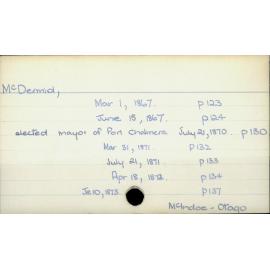 McDermid,
Mar 1, 1867. p123
June 15, 1867. p124
elected mayor of Port Chalmers July 21, 1870. p130
Mar 31, 1871. p132
July 21, 1871. p133
Apr 18, 1873. p134
1873. p137
McIndoe - Otago